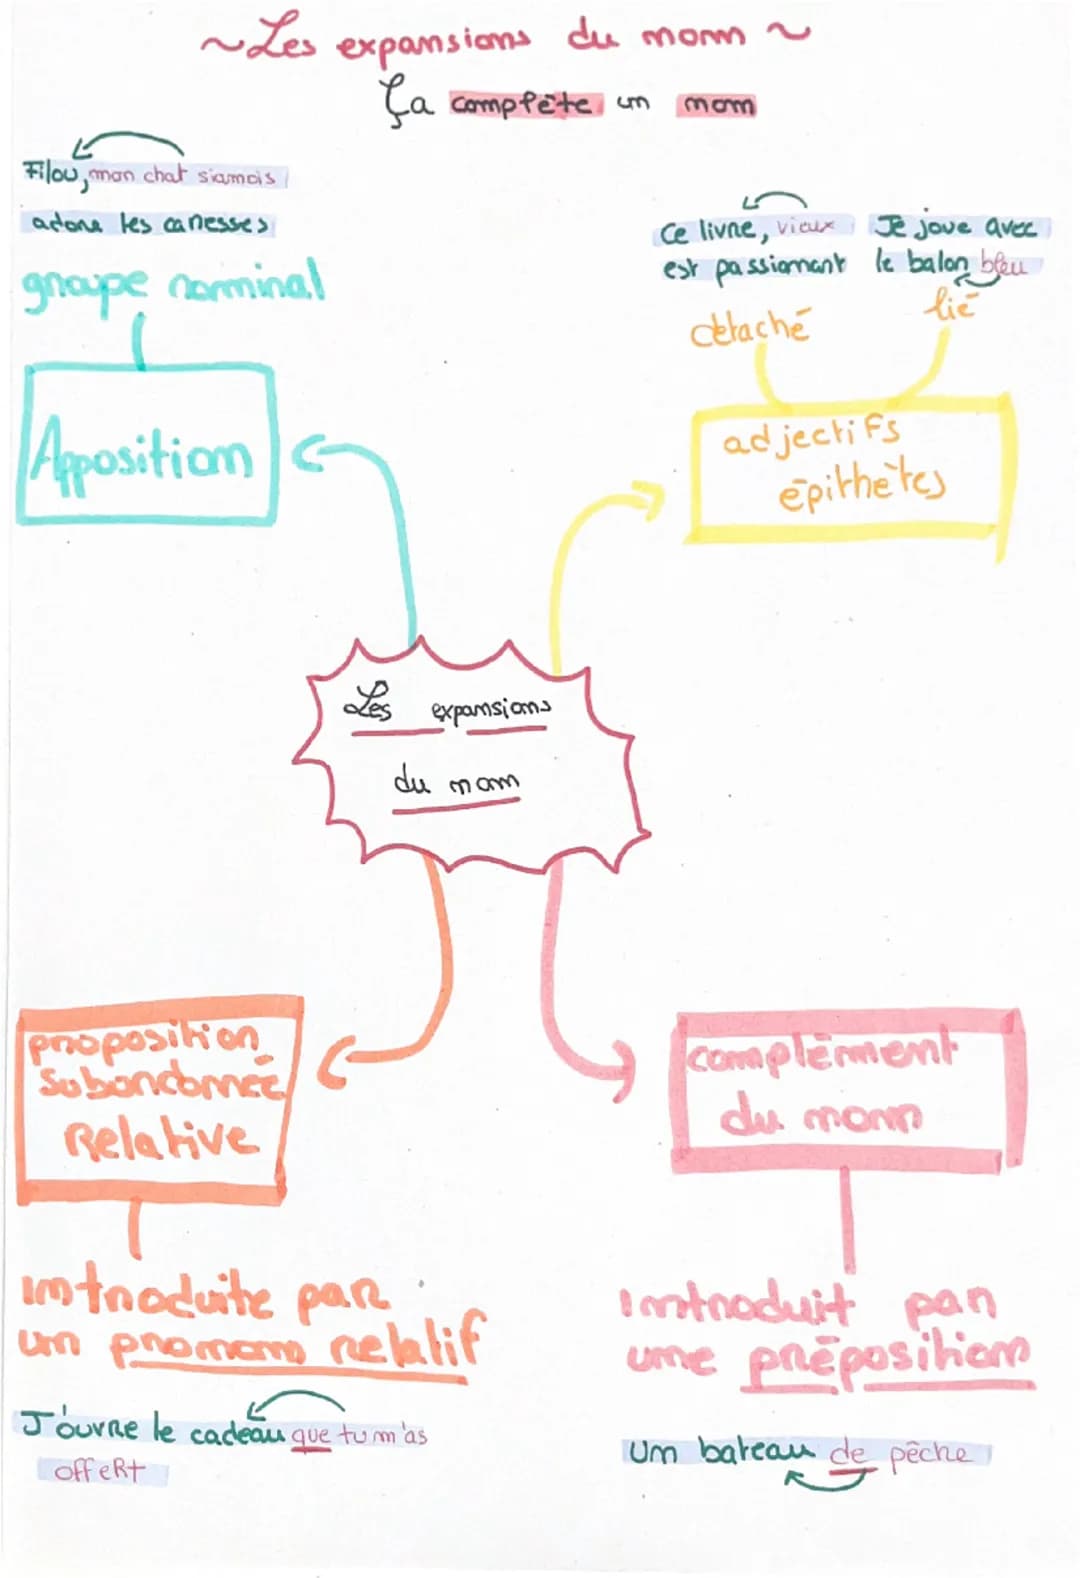 ~Les expansions du nom ~
Ça complète un nom
Filou, mon chat siamois
adore les caresses
groupe nominal
Apposition
Ce livre, vieux
est passionant
Je joue avec
le balon bleu
détaché
lié
adjectifs
épithètes
Les expansions
du nom
proposition
subordonnée
Relative
introduite par
un pronom relatif
J'ouvre le cadeau que tu m'as
offert
complément
du nom
introduit par
une préposition
Un bateau de pêche